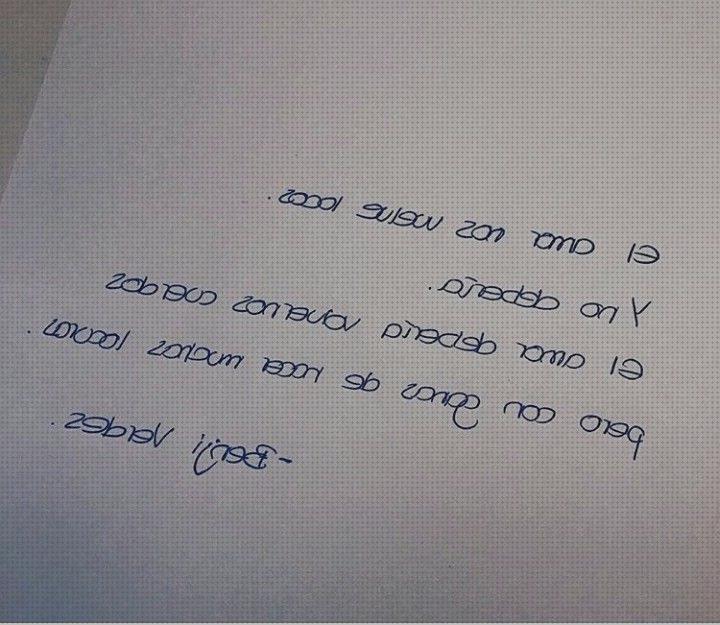 El amor nos vuelve locos.
Y no debería.
El amor debería volvernos cuerdos
pero con ganas de hacer muchas locuras.
-Benji Verdes.